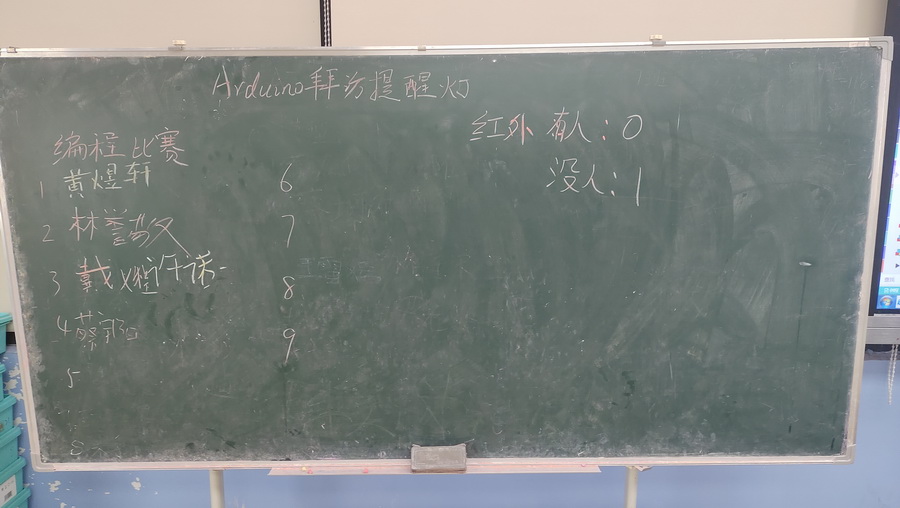 Arduino拜访提醒灯
红外 有人：0
没人：1
编程比赛
1 黄煜轩
2 林誉
3 戴 许诺
4 蔡
5
6
7
8
9